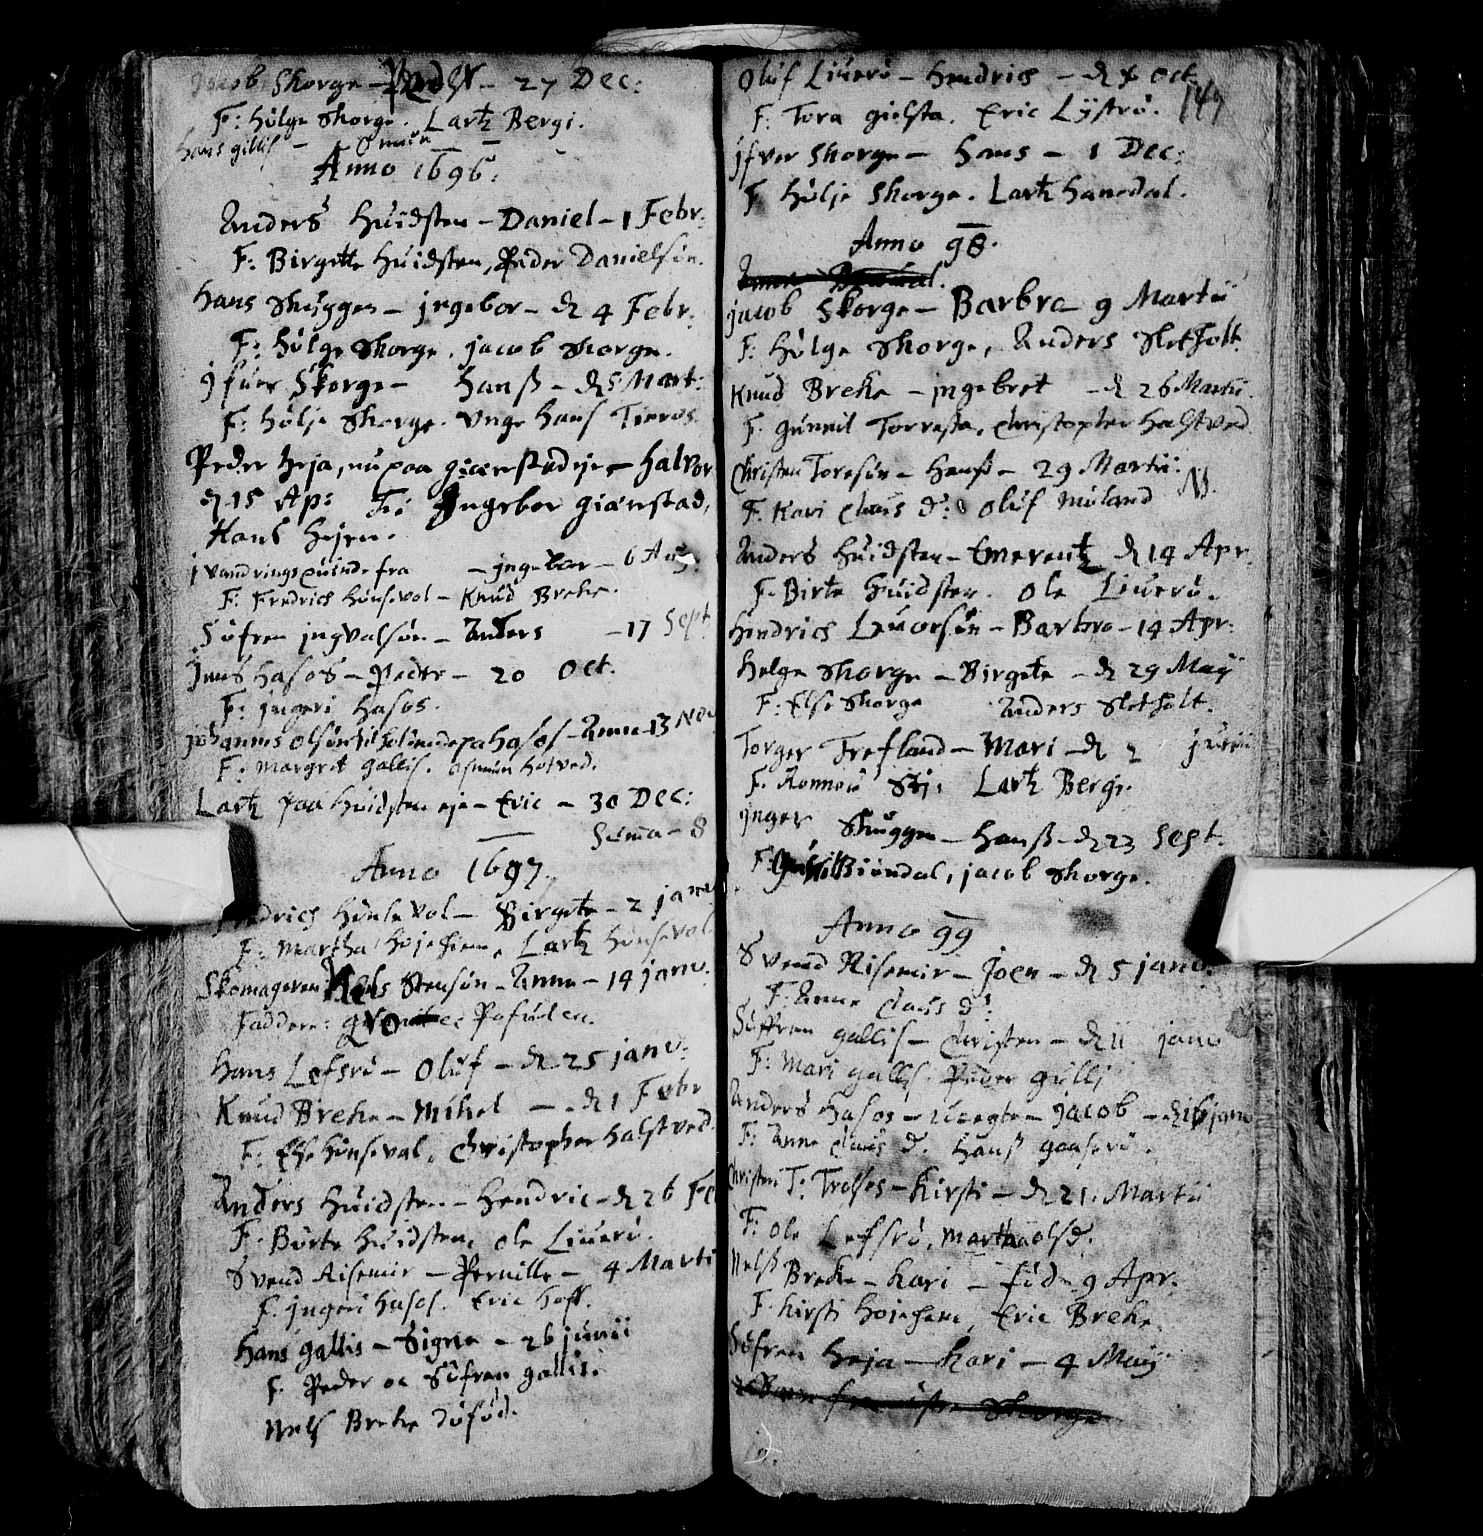 Jacob Skorge - Peder - 27 Dec:
F: Hölge Skorge. Lartz Bergi.
Hans gillis -
Anno 1696.
Anders Huidsten - Daniel - 1 Febr:
F: Birgitte Huidsten, Peder Danielsön.
Hans Skuggen - jngebor - d 4 Febr:
F: Hölge Skorge. jacob Skorge.
jfuer Skorge - Hanß - d 5 Mart:
F: Hölje Skorge. Unge Hans Tieros
Peder Heja, nu paa giærstad eje - Halvor
d 15 Ap: F: Jngebor giærstad,
Hans Hejen.
j vandrings quinde fra - jngebor - 6 Aug.
F: Fredrich Hönsevol - Knud Breke.
Söfren jngvalsön - Anders - 17 Sept
Jens Hasos - Peder - 20 Oct.
F: jngeri Hasos.
johannis olsön til holende pa Hasos - Anne - 13 Nov
F: Margret gallis. Asmun Hotved.
Lartz paa Huidsten eje - Eric - 30 Dec:
Suma - 8
Anno 1697.
Hönsevol - Birgete - 2 janu
F: Martha Hojehiem, Lartz Hönsevol
Skomageren Niels Stensön - Anne - 14 janv.
Faddere:
Hans Lefsrö - Oluf - d 25 janv.
Knud Breke - Mikel - d 1 Febr
F: Else Hönseval, Christopher Halstved.
Anders Huidsten - Hendric - d 26 Fe
F. Börte Huidsten, ole Liuerö.
Svend Risemir - Pernille - 4 Marti
F. jngeri Hasos. Eric Hoff.
Hans gallis - Signe - 26 junii
F. Peder oc Söfren gallis.
Nels Breke döföd.
Oluf Liuerö - Hendrich - d Oct
147
F: Tora gielsta. Eric Lyströ.
jfver Skorge - Hans - 1 Dec:
F. Hölje Skorge. Lartz Hanedal.
Anno 98.
jacob Skorge - Barbra 9 Martii
F: Hölge Skorge, Anders Sletholt.
Knud Breke - jngebret - d 26 Martii.
F. gunnil Torresta, Christopher Halstved
Christen Toresön - Hanß - 29 Martii.
F. Kari Claus d: Oluf Moland
Anders Huidsten - Emerentz d 14 Apr.
F. Birte Huidsten. Ole Liuerö.
Hendrich Lauorsön - Barbro - 14 Apr:
Helge Skorge - Birgete - d 29 Maij
F: Else Skorge Anders Sletholt.
Torger Trefland - Mari - d 2 junii
F. Ronnou Lartz Bergi.
jnger Skuggen - Hanß - d 23 Sept.
F: Biöndal, jacob Skorge.
Anno 99
Svend Risemir - Joen - d 5 janv.
F: Anne Claus d:
Söffren gallis - Christen - d 11 janv
F: Mari gallis. Peder gulli
Anders Hasos - - jacob - d 16 janv
F: Anne Claus d. Hanß gaaserö.
Christen T: Trolsos - Kirsti - d 21. Martii
F: Ole Lefsrö, Martha ols d.
Nelß Breke - Kari - föd 9 Apr.
F: Kirsti Hojehiem, Eric Breke.
Söfren Heja - Kari - 4 Maij